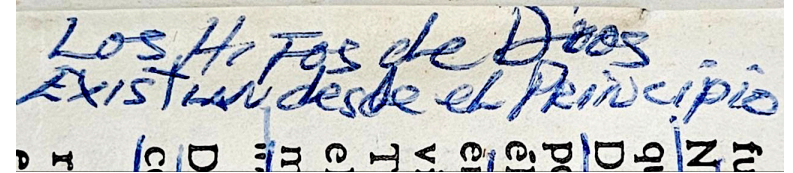 Los Hijos de Dios
Existian desde el Principio